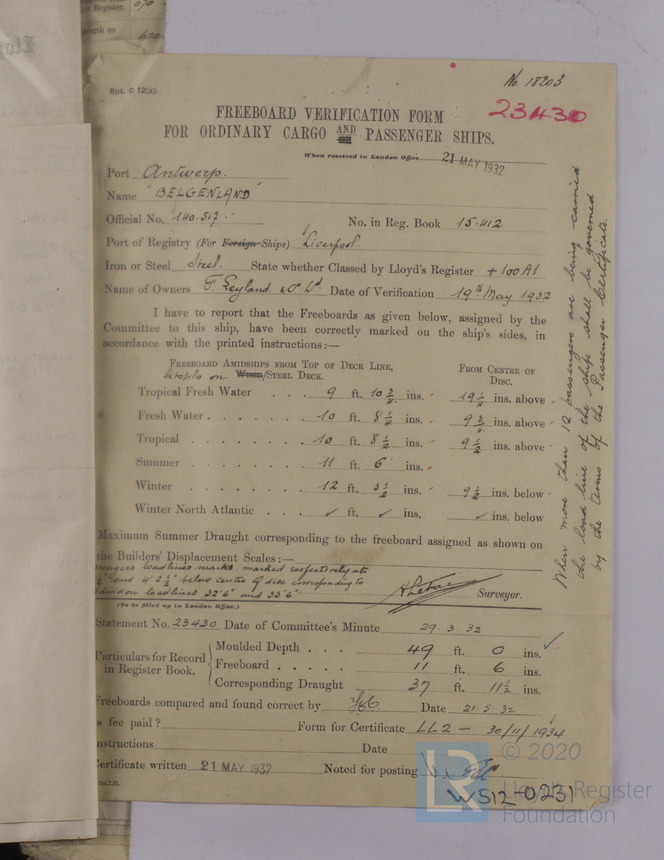 s Register.
ngth on
No. 18203
Rpt. C 12(a).
23430
FREEBOARD VERIFICATION FORM
FOR ORDINARY CARGO AND PASSENGER SHIPS.
When received in London Office 21 MAY 1932
Port Antwerp.
Name "BELGENLAND"
Official No. 140.517 No. in Reg. Book 15.412
Port of Registry (For Foreign Ships) Liverpool
Iron or Steel Steel. State whether Classed by Lloyd's Register +100A1
Name of Owners F Leyland & Co Ld Date of Verification 19th May 1932
I have to report that the Freeboards as given below, assigned by the
Committee to this ship, have been correctly marked on the ship's sides, in
accordance with the printed instructions:—
FREEBOARD AMIDSHIPS FROM TOP OF DECK LINE, FROM CENTRE OF
on WOOD/STEEL DECK. DISC.
Tropical Fresh Water . . . 9 ft. 10 3/4 ins. 19 1/4 ins. above
Fresh Water . . . . . . . 10 ft. 8 1/4 ins. 9 3/4 ins. above
Tropical . . . . . . . . 10 ft. 8 1/2 ins. 9 1/2 ins. above
Summer . . . . . . . . 11 ft. 6 ins.
Winter . . . . . . . . 12 ft. 3 1/2 ins. 9 1/2 ins. below
Winter North Atlantic . . . ✓ ft. ✓ ins. ✓ ins. below
When more than 12 passengers are being carried
the load line of the ship shall be governed
by the terms of the Passenger Certificate.
Maximum Summer Draught corresponding to the freeboard assigned as shown on
the Builders' Displacement Scales:—
loadlines marks marked respectively at
and 4' 2 1/2" below centre of disc corresponding to
division loadlines 32'6" and 33'6"
Surveyor.
(To be filled up in London Office.)
Statement No. 23430 Date of Committee's Minute 29.3.32
Particulars for Record in Register Book.
Moulded Depth . . . 49 ft. 0 ins. ✓
Freeboard . . . . . 11 ft. 6 ins.
Corresponding Draught 37 ft. 11 1/2 ins.
Freeboards compared and found correct by Date 21.5.32
s fee paid? Form for Certificate LL2 — 30/11/1934
nstructions Date
Certificate written 21 MAY 1932 Noted for posting
W512-0231
LR
© 2020
Lloyd's Register
Foundation